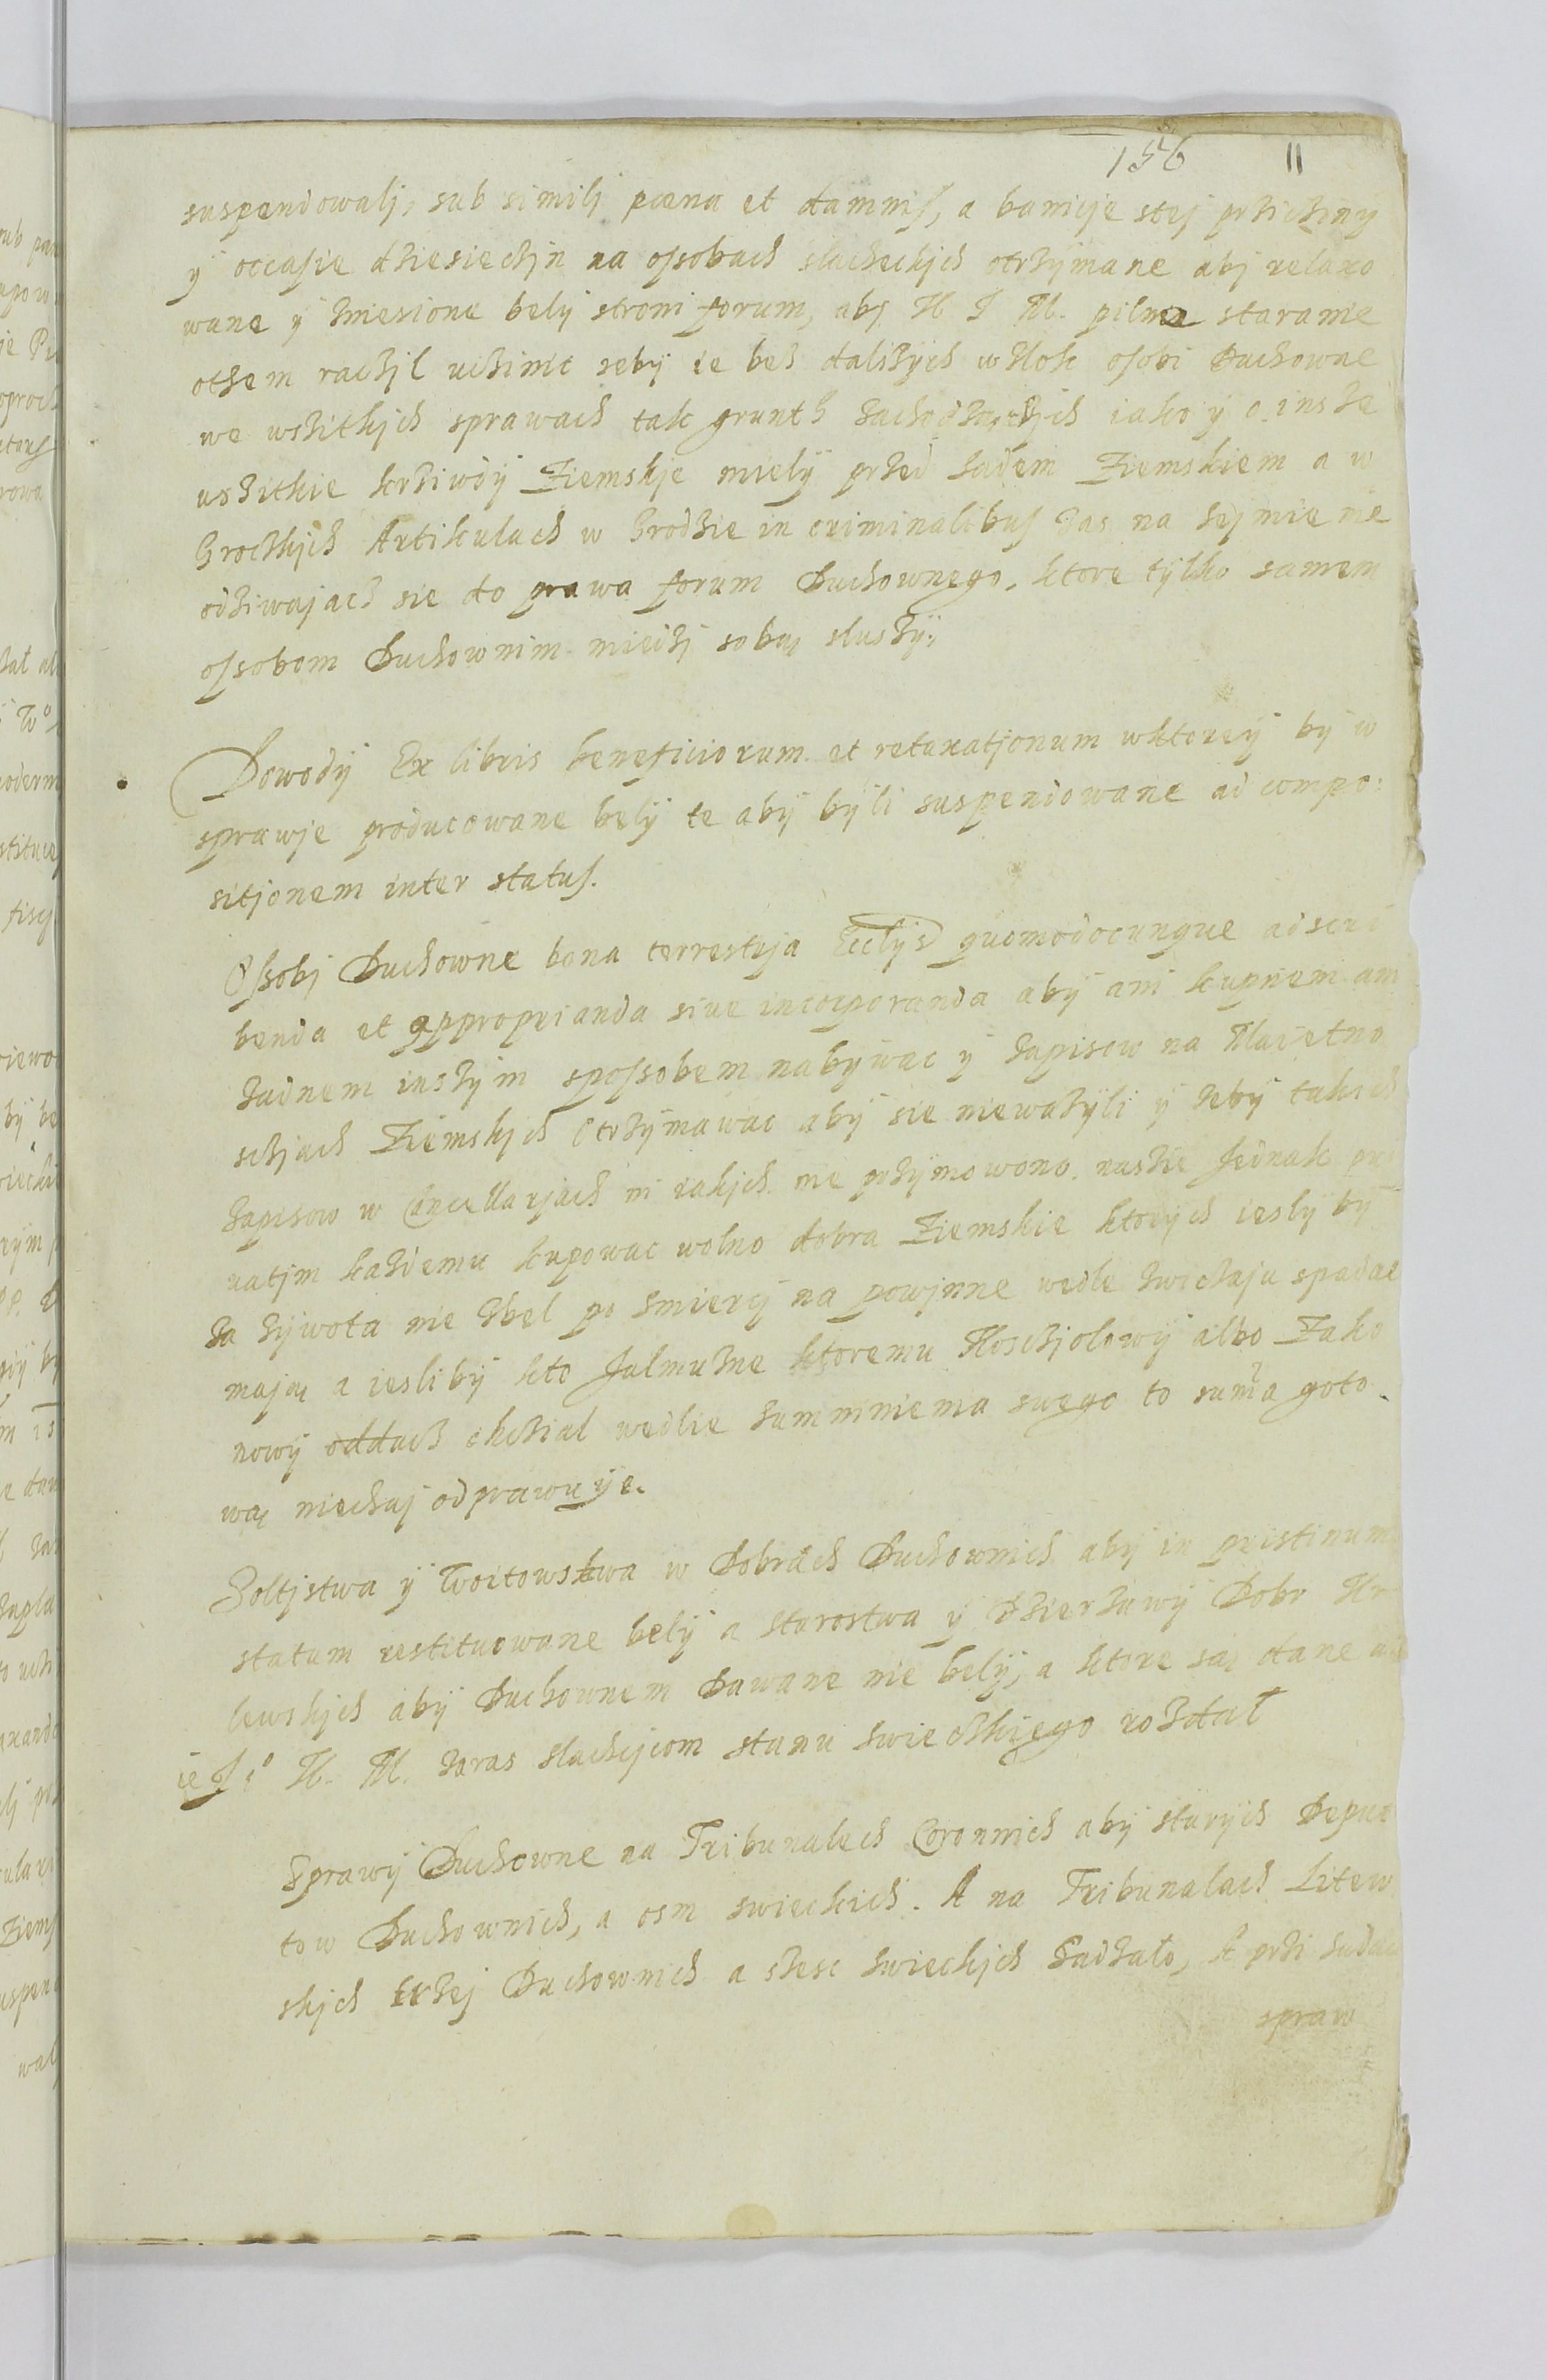 156 11
suspendowalj, sub similj poena et damnis, a banicje stej prziczinÿ
ÿ occasie dziesieczjn na ossobach slacheckjch otrzÿmane abj relaxo
wane ÿ zniesione belÿ stroni forum, abj K J M. pilne staranie
otzem raczjl uczinic zebÿ ie bez dalszÿch wzlok osobi Duchowne
we wszitkjch sprawach tak grunth zachodzączjch iako ÿ o insze
wszitkie krziwdÿ Ziemskje mielÿ przed sadem Ziemskiem a w
Grodzkjch Artikulach w Grodzie in criminalibus zas na Sejmie nie
odziwajacz sie do prawa forum Duchownego, ktore tÿlko samem
ossobom Duchownim miedzj sobą sluzÿ.
Dowodÿ Ex libris beneficiorum et retaxatjonum wktoreÿ bÿ w
sprawje producowane belÿ te abÿ bÿli suspendowane ad compo:
sitjonem inter status.
Ossobj Duchowne bona terrestrja Ecclijs quomodocunque adscri
benda et approprianda siue incorporanda abÿ ani kupnem ani
zadnem inszÿm spossobem nabÿwac ÿ zapisow na Maietno
sczjach Ziemskjch Otrzÿmawac abÿ sie niewazÿli ÿ zebÿ takich
zapisow w Cancellarjach ni iakjch nie przÿmowono. naszie Jednak pri
uatjm kazdemu kupowac wolno dobra Ziemskie ktorÿch ieslÿ bÿ
za zÿwota nie zbel po smiercj na powjnne wedle zwiczaju spadac
mają a ieslibÿ kto Jalmuzne ktoremu Kosczjolowÿ albo Zako
nowÿ oddacz chczial wedlie sumnniema swego to suma goto
wą niechaj odprawuÿe.
Soltjstwa ÿ Woitowstwa w Dobrach Duchownich abÿ in pristinum
statum restituowane belÿ a Starostwa ÿ Dzierzawÿ Dobr Kro
lewskjch abÿ Duchownem Dawane nie belÿ, a ktore są dane
ie J° K. M. zaras slachcjcom stanu swieczkiego rozdal
Sprawÿ Duchowne na Tribunalech Coronnich abÿ starÿch Deputa
tow Duchownich, a osm swieckich. A na Tribunalach Litew
skjch trzej Duchownich a szesc Swieckjch Sadzalo, A przi sadac
spraw